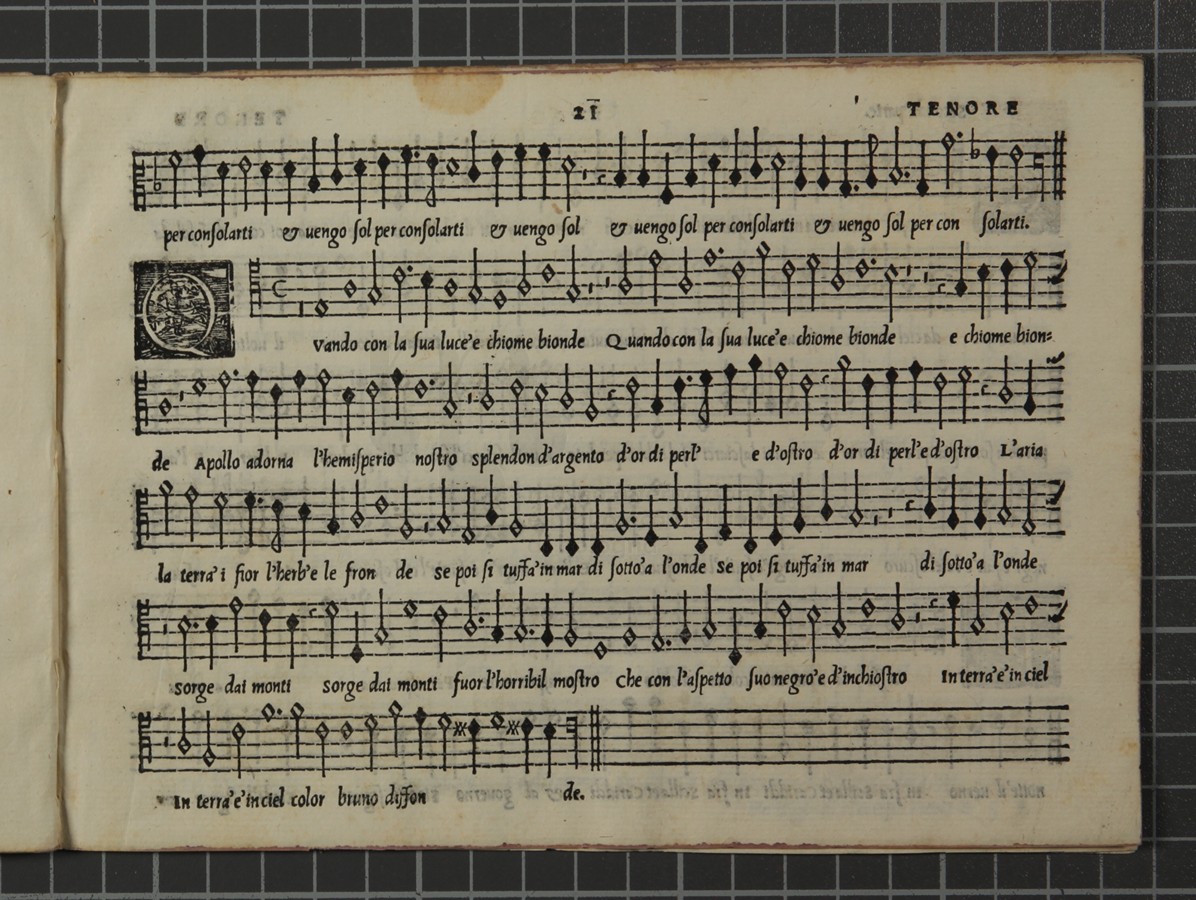 21 TENORE
per consolarti & uengo sol per consolarti & uengo sol & uengo sol per consolarti & uengo sol per con solarti.
Q vando con la sua luce'e chiome bionde Quando con la sua luce'e chiome bionde e chiome bion=
de Apollo adorna l'hemisperio nostro splendon d'argento d'or di perl' e d'ostro d'or di perl'e d'ostro L'aria
la terra'i fior l'herb'e le fron de se poi si tuffa'in mar di sotto'a l'onde se poi si tuffa'in mar di sotto'a l'onde
sorge dai monti sorge dai monti fuor l'horribil mostro Che con l'aspetto suo negro'e d'inchiostro In terra'e'in ciel
In terra'e'in ciel color bruno diffon de.